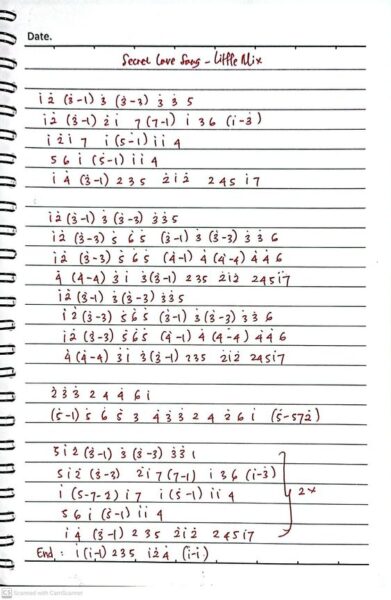 Date.
Secret Love Song - Little Mix
i̇ 2̇ (3̇-1) 3̇ (3̇-3) 3̇ 3̇ 5
i̇ 2̇ (3̇-1) 2̇ i̇ 7 (7-1) i̇ 3 6 (i̇-3̇)
i̇ 2̇ i̇ 7 i̇ (5̇-1) i̇ i̇ 4
5 6 i̇ (5̇-1) i̇ i̇ 4
i̇ 4̇ (3̇-1) 2 3 5 2̇ i̇ 2̇ 2 4 5 i̇ 7
i̇ 2̇ (3̇-1) 3̇ (3̇-3) 3̇ 3̇ 5
i̇ 2̇ (3̇-3) 5̇ 6̇ 5̇ (3̇-1) 3̇ (3̇-3) 3̇ 3̇ 6
i̇ 2̇ (3̇-3) 5̇ 6̇ 5̇ (4̇-1) 4̇ (4̇-4) 4̇ 4̇ 6
4̇ (4̇-4) 3̇ i̇ 3̇ (3̇-1) 2 3 5 2̇ i̇ 2̇ 2 4 5 i̇ 7
i̇ 2̇ (3̇-1) 3̇ (3̇-3) 3̇ 3̇ 5
i̇ 2̇ (3̇-3) 5̇ 6̇ 5̇ (3̇-1) 3̇ (3̇-3) 3̇ 3̇ 6
i̇ 2̇ (3̇-3) 5̇ 6̇ 5̇ (4̇-1) 4̇ (4̇-4) 4̇ 4̇ 6
4̇ (4̇-4) 3̇ i̇ 3̇ (3̇-1) 2 3 5 2̇ i̇ 2̇ 2 4 5 i̇ 7
2̇ 3̇ 3̇ 2 4 4̇ 6 i̇
(5̇-1) 5̇ 6̇ 5̇ 3̇ 4̇ 3̇ 3̇ 2 4 2̇ 6 i̇ (5̇-572̇)
5 i̇ 2̇ (3̇-1) 3̇ (3̇-3) 3̇ 3̇ 1
5 i̇ 2̇ (3̇-3) 2̇ i̇ 7 (7-1) i̇ 3 6 (i̇-3̇)
i̇ (5-7-2) i̇ 7 i̇ (5̇-1) i̇ i̇ 4
2x
5 6 i̇ (5̇-1) i̇ i̇ 4
i̇ 4̇ (3̇-1) 2 3 5 2̇ i̇ 2̇ 2 4 5 i̇ 7
End : i̇ (i̇-1) 2 3 5 i̇ 2̇ 4 (i̇-i̇)
CS Scanned with CamScanner